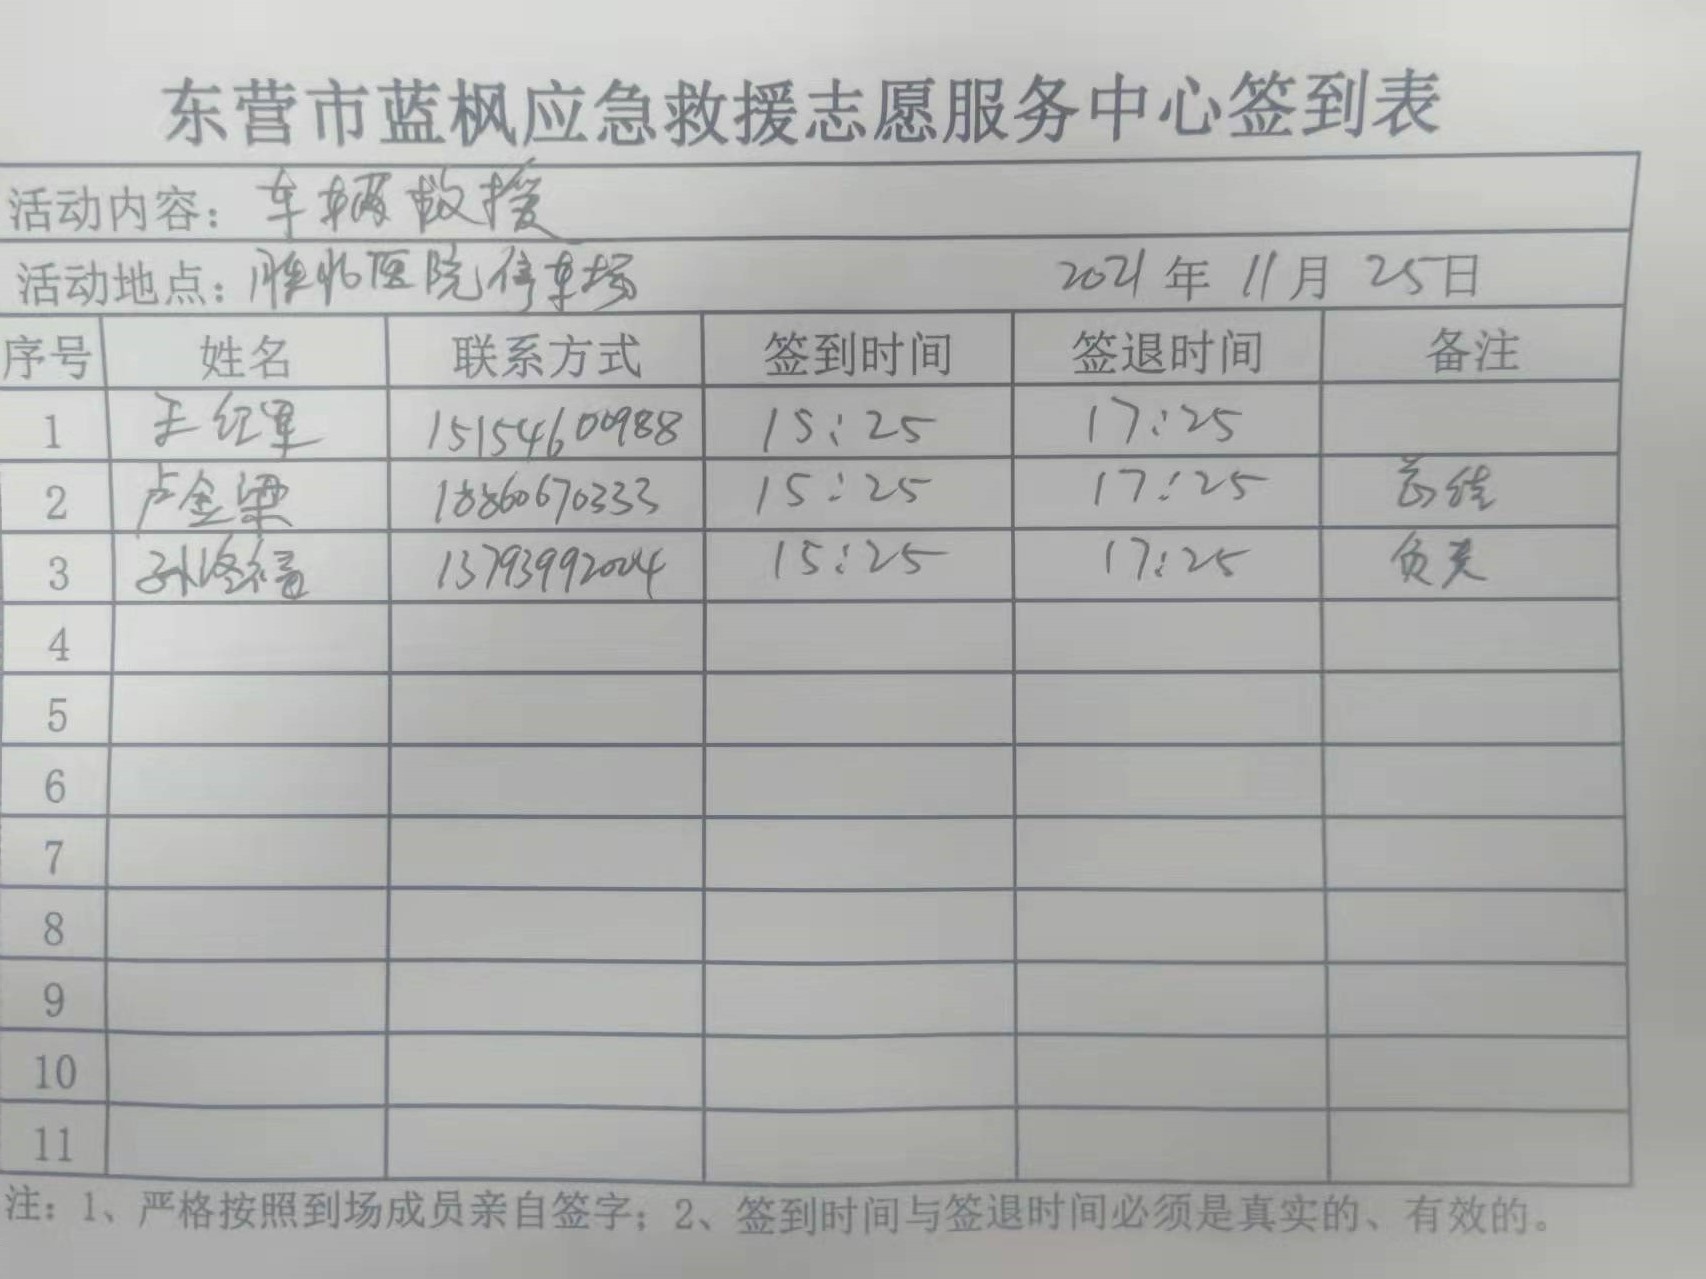 东营市蓝枫应急救援志愿服务中心签到表
活动内容：车辆救援
活动地点：胜北医院停车场 2021年11月25日
序号 姓名 联系方式 签到时间 签退时间 备注
1 王红军 15154600988 15:25 17:25
2 卢金梁 18860670333 15:25 17:25
3 孙 13793992004 15:25 17:25
4
5
6
7
8
9
10
11
注：1、严格按照到场成员亲自签字；2、签到时间与签退时间必须是真实的、有效的。